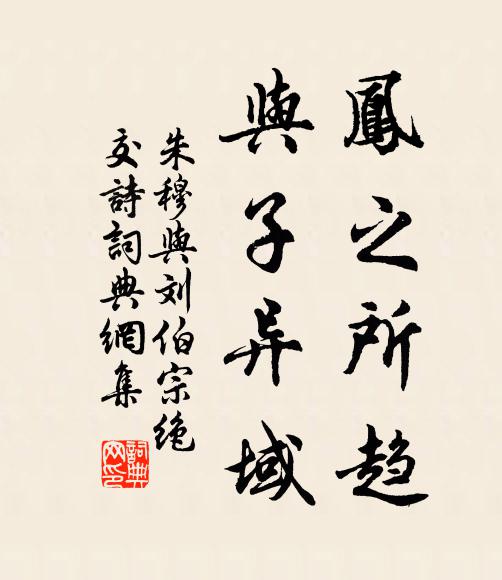 鳳之所趋
與子异域
朱穆與刘伯宗绝
交詩詞典網集
詞典
网印